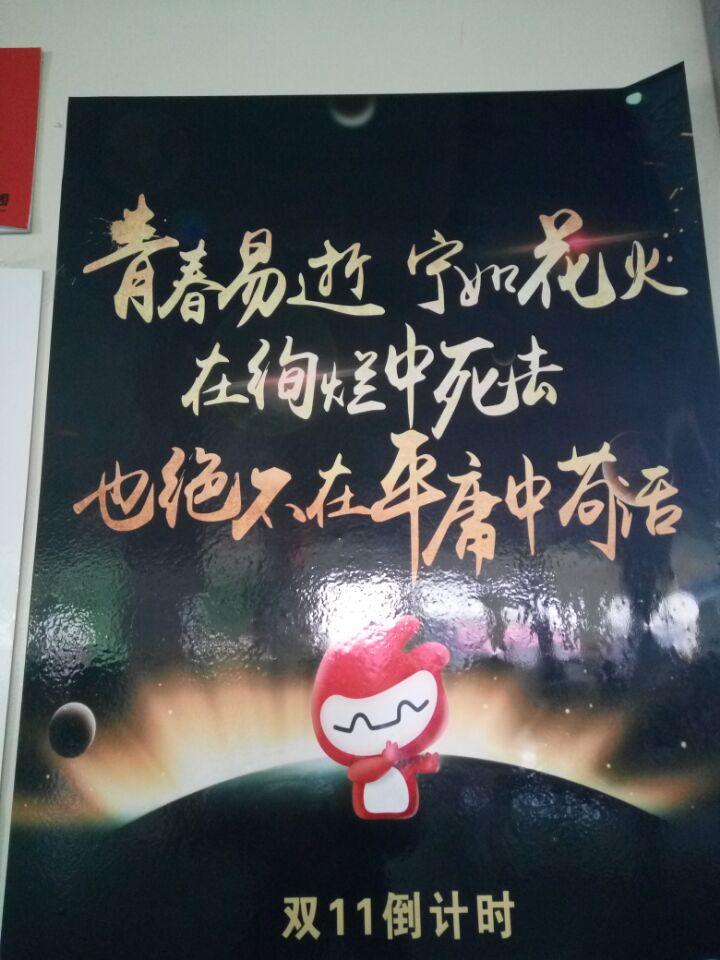 青春易逝 宁如花火
在绚烂中死去
也绝不在平庸中苟活
双11倒计时